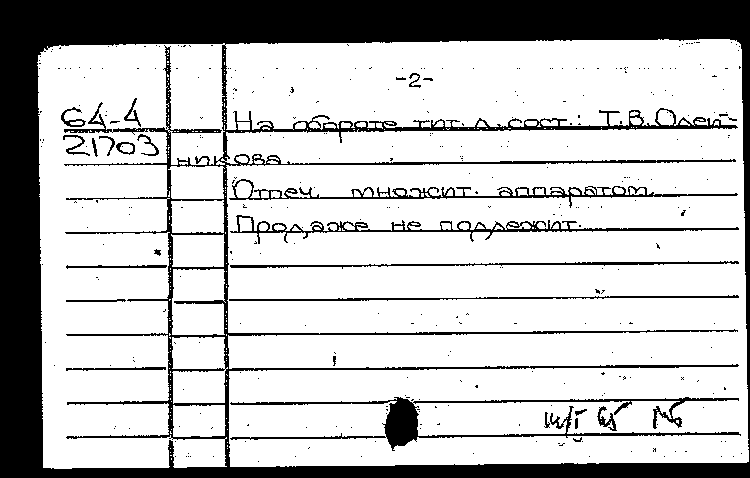 -2-
64-4
21703
На обороте тит. л. сост.: Т.В.Олей-
никова.
Отпеч. множит. аппаратом.
Продаже не подлежит.